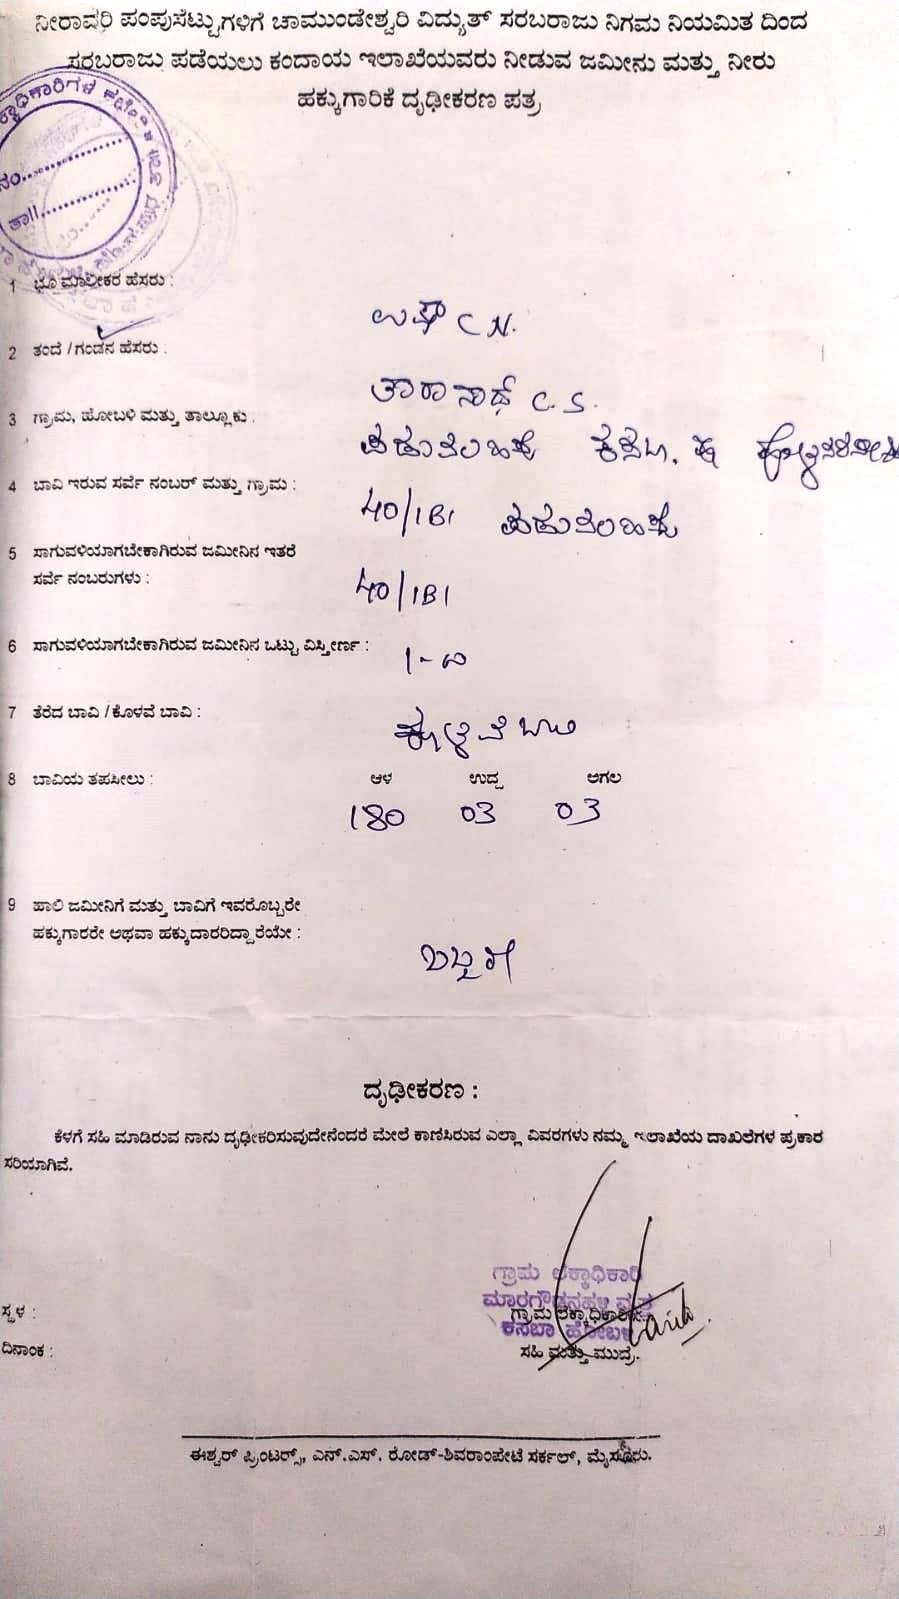 ನೀರಾವರಿ ಪಂಪುಸೆಟ್ಟುಗಳಿಗೆ ಚಾಮುಂಡೇಶ್ವರಿ ವಿದ್ಯುತ್ ಸರಬರಾಜು ನಿಗಮ ನಿಯಮಿತ ದಿಂದ
ಸರಬರಾಜು ಪಡೆಯಲು ಕಂದಾಯ ಇಲಾಖೆಯವರು ನೀಡುವ ಜಮೀನು ಮತ್ತು ನೀರು
ಹಕ್ಕುಗಾರಿಕೆ ದೃಢೀಕರಣ ಪತ್ರ
ನಂ..................
ತಾ||..................
1 ಭೂ ಮಾಲೀಕರ ಹೆಸರು :
ಉಷಾ C N.
2 ತಂದೆ / ಗಂಡನ ಹೆಸರು :
ತಾರಾನಾಥ್ C. S.
3 ಗ್ರಾಮ, ಹೋಬಳಿ ಮತ್ತು ತಾಲ್ಲೂಕು :
ಕಸಬಾ.
4 ಬಾವಿ ಇರುವ ಸರ್ವೆ ನಂಬರ್ ಮತ್ತು ಗ್ರಾಮ :
40/1B1
5 ಸಾಗುವಳಿಯಾಗಬೇಕಾಗಿರುವ ಜಮೀನಿನ ಇತರೆ
ಸರ್ವೆ ನಂಬರುಗಳು :
40/1B1
6 ಸಾಗುವಳಿಯಾಗಬೇಕಾಗಿರುವ ಜಮೀನಿನ ಒಟ್ಟು ವಿಸ್ತೀರ್ಣ :
7 ತೆರೆದ ಬಾವಿ / ಕೊಳವೆ ಬಾವಿ :
ಕೊಳವೆ ಬಾವಿ
8 ಬಾವಿಯ ತಪಸೀಲು : ಆಳ ಉದ್ದ ಅಗಲ
180 03 03
9 ಹಾಲಿ ಜಮೀನಿಗೆ ಮತ್ತು ಬಾವಿಗೆ ಇವರೊಬ್ಬರೇ
ಹಕ್ಕುಗಾರರೇ ಅಥವಾ ಹಕ್ಕುದಾರರಿದ್ದಾರೆಯೇ :
ದೃಢೀಕರಣ :
ಕೆಳಗೆ ಸಹಿ ಮಾಡಿರುವ ನಾನು ದೃಢೀಕರಿಸುವುದೇನೆಂದರೆ ಮೇಲೆ ಕಾಣಿಸಿರುವ ಎಲ್ಲಾ ವಿವರಗಳು ನಮ್ಮ ಇಲಾಖೆಯ ದಾಖಲೆಗಳ ಪ್ರಕಾರ
ಸರಿಯಾಗಿವೆ.
ಗ್ರಾಮ ಲೆಕ್ಕಾಧಿಕಾರಿ
ಮಾರಗೌಡನಹಳ್ಳಿ ವೃತ್ತ
ಸ್ಥಳ : ಗ್ರಾಮ ಲೆಕ್ಕಾಧಿಕಾರಿಗಳ
ಕಸಬಾ ಹೋಬಳಿ
ದಿನಾಂಕ : ಸಹಿ ಮತ್ತು ಮುದ್ರೆ.
ಈಶ್ವರ್ ಪ್ರಿಂಟರ್ಸ್, ಎನ್.ಎಸ್. ರೋಡ್-ಶಿವರಾಂಪೇಟೆ ಸರ್ಕಲ್, ಮೈಸೂರು.